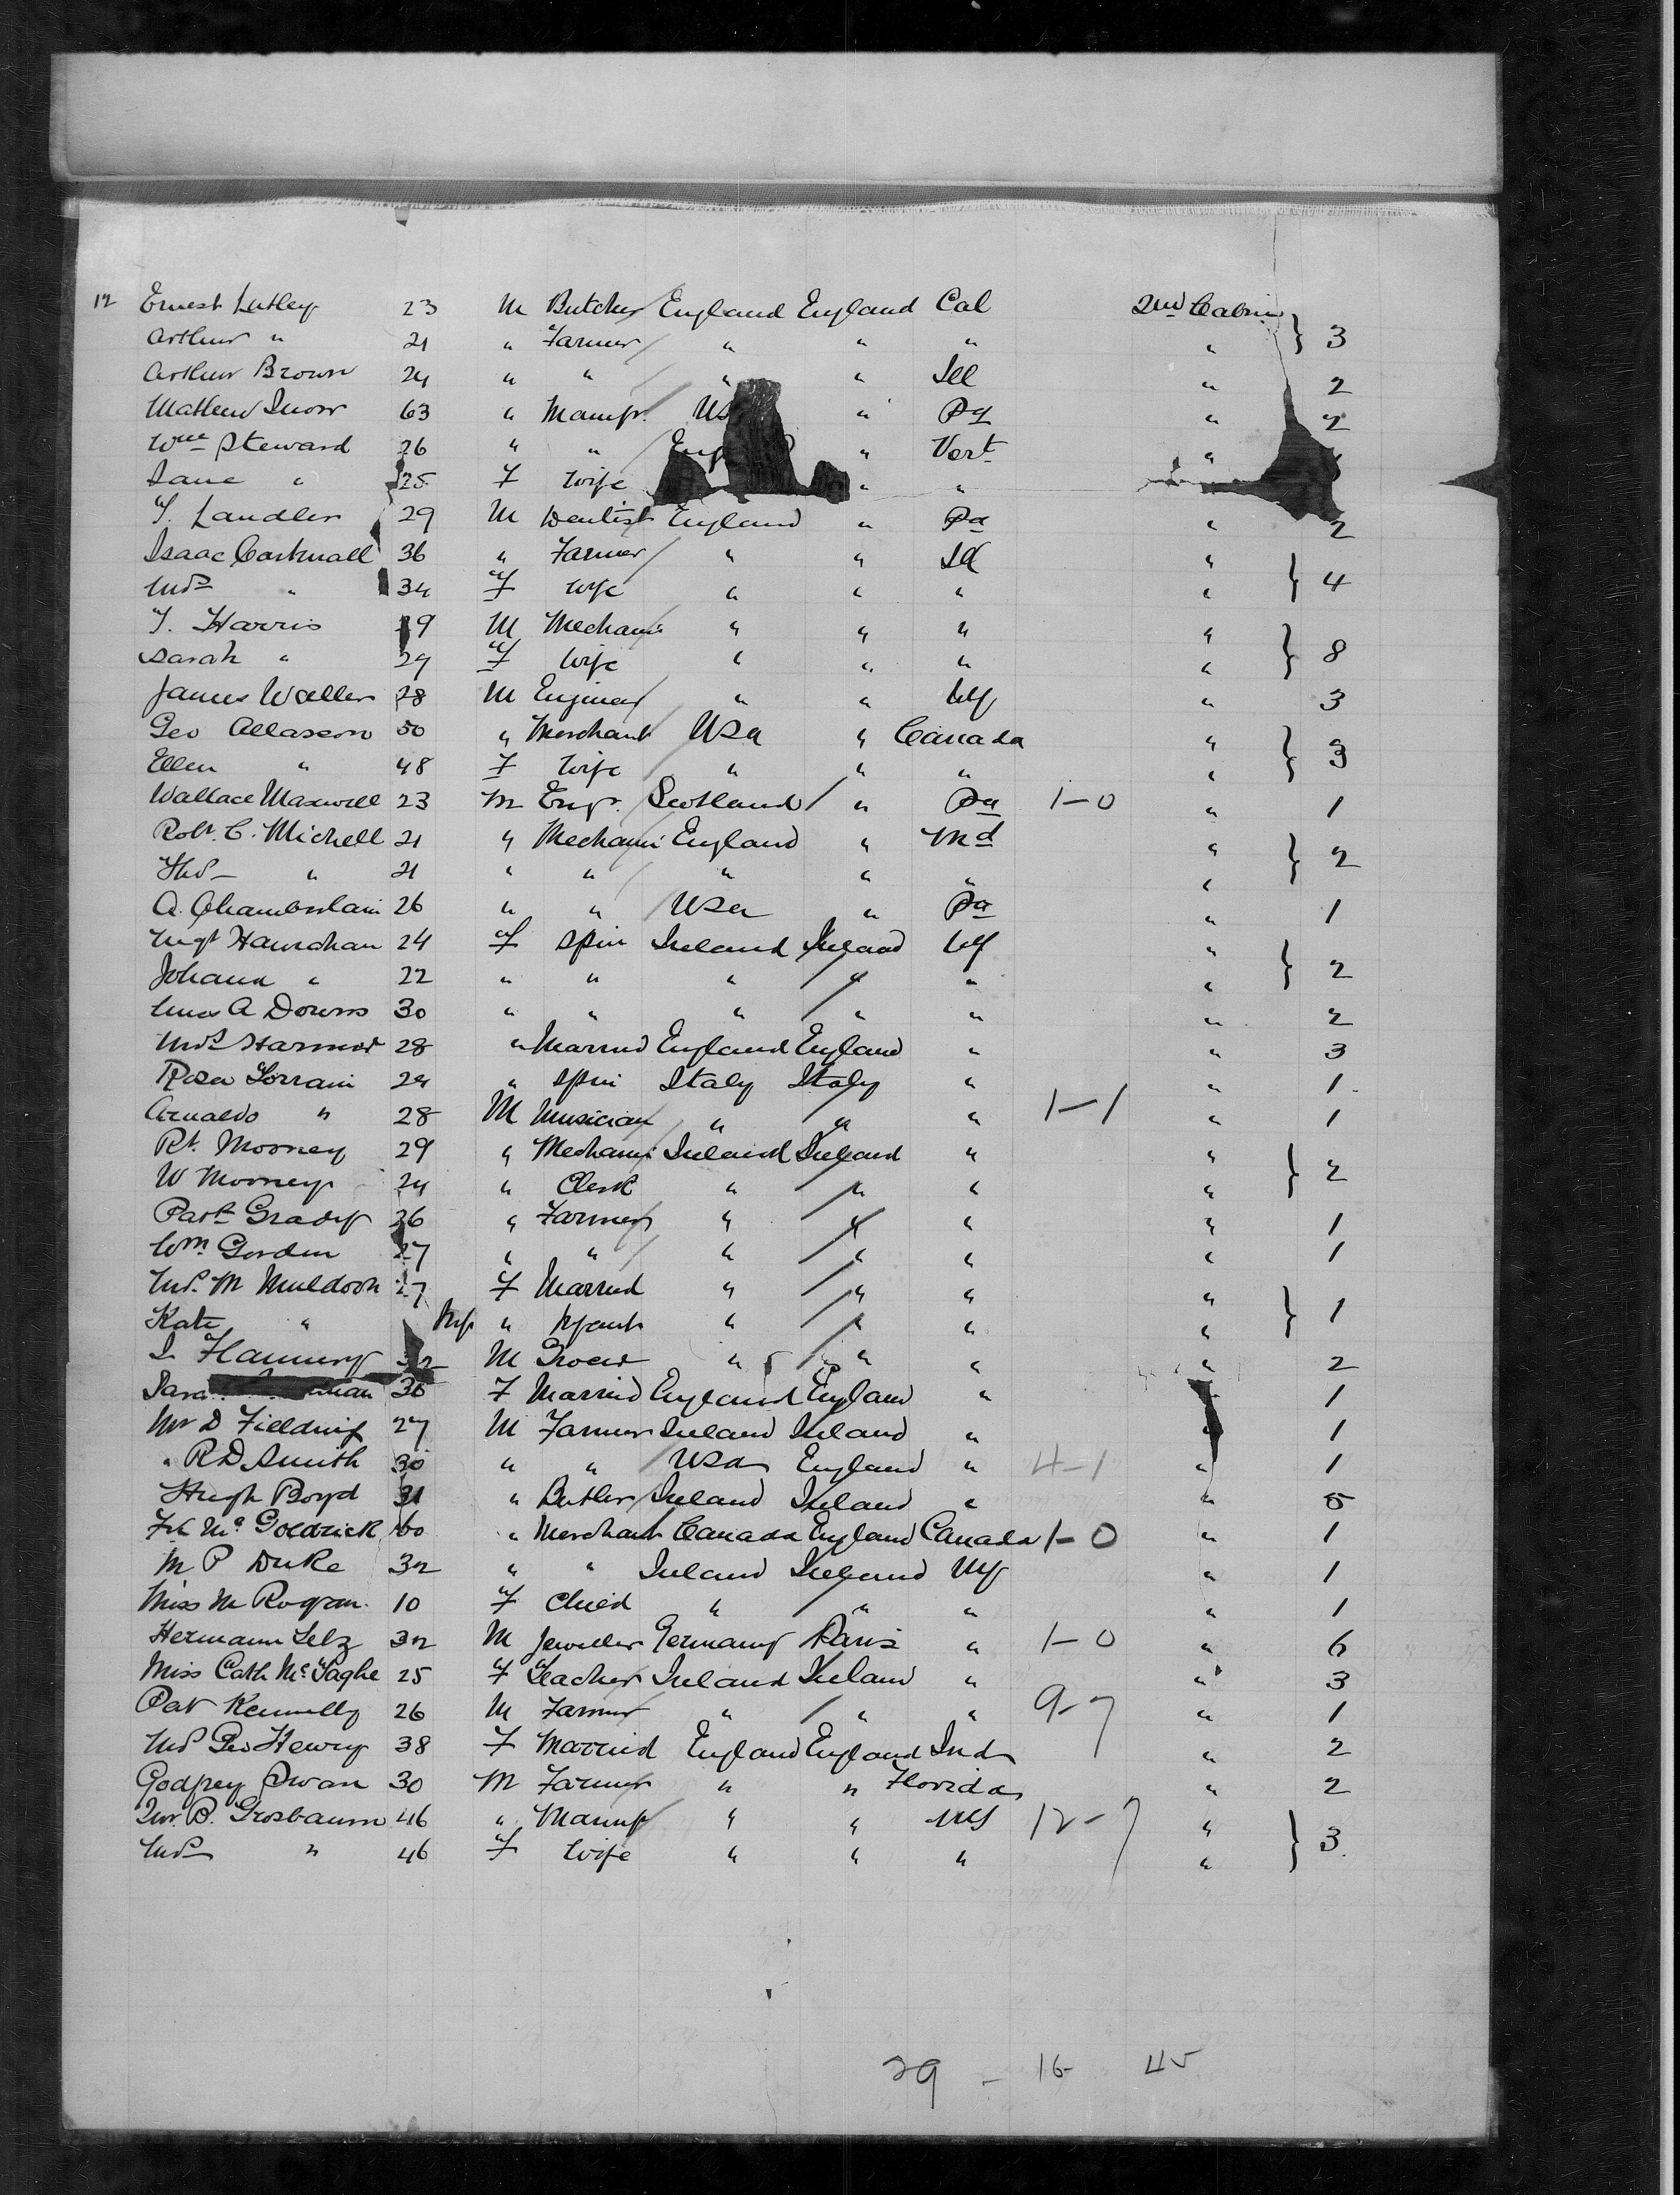 12 Ernest Lutley 23 M Butcher England England Cal 2nd Cabin
Arthur " 21 " Farmer " " " " } 3
Arthur Brown 24 " " " " Ill " 2
Mathew Snow 63 " Manfr. US " Pa " 2
Wm Steward 26 " " Eng " Vert "
Jane " 25 F Wife " "
T. Landler 29 M Dentist England " Pa " 2
Isaac Cartnall 36 " Farmer " " Ill "
Mrs " 34 F Wife " " " " } 4
T. Harris 9 M Mechani " " " "
Sarah " 29 F Wife " " " " } 8
James Waller 28 M Engineer " " NY " 3
Geo Allason 50 " Merchant USA " Canada "
Ellen " 48 F Wife " " " " } 3
Wallace Maxwell 23 M Engr. Scotland " Pa 1-0 " 1
Robt. C. Michell 21 " Mechani England " Md "
Thos " 21 " " " " " " } 2
A. Chamberlain 26 " " USA " Pa " 1
Mgt Hanrahan 24 F Spin Ireland Ireland NY "
Johana " 22 " " " " " " } 2
A Downs 30 " " " " " " 2
Mrs Harmer 28 " Married England England " " 3
Rosa Lorraini 24 " Spin Italy Italy " " 1
Arnaldo " 28 M Musician " " " 1-1 " 1
Rt. Mooney 29 " Mechani Ireland Ireland " "
W Mooney 24 " Clerk " " " " } 2
Patk Grady 26 " Farmer " " " " 1
Wm Gorden 27 " " " " " " 1
Mrs. M Muldoon 27 F Married " " " "
Kate " Inf " Infant " " " " } 1
Flannery 32 M Grocer " " " " 2
Sara 30 F Married England England " 1
Mr D Fielding 27 M Farmer Ireland Ireland " " 1
" R D Smith 30 " " USA England " 4-1 " 1
Hugh Boyd 31 " Butler Ireland Ireland " " 5
Mc Goldrick 60 " Merchant Canada England Canada 1-0 " 1
M P Duke 32 " " Ireland Ireland NY " 1
Miss M Rogan. 10 F Child " " " " 1
Hermann Selz 32 M Jeweller Germany Paris " 1-0 " 6
Miss Cath McTaghe 25 F Teacher Ireland Ireland " " 3
Pat Kennelly 26 M Farmer " " " 9-7 " 1
Mrs Geo Henry 38 F Married England England Ind " 2
Godfrey Swan 30 M Farmer " " Florida " 2
Mr. B. Grosbaum 46 " Manuf " " NY 12-7 "
Mrs " 46 F Wife " " " " } 3.
29 - 16 45